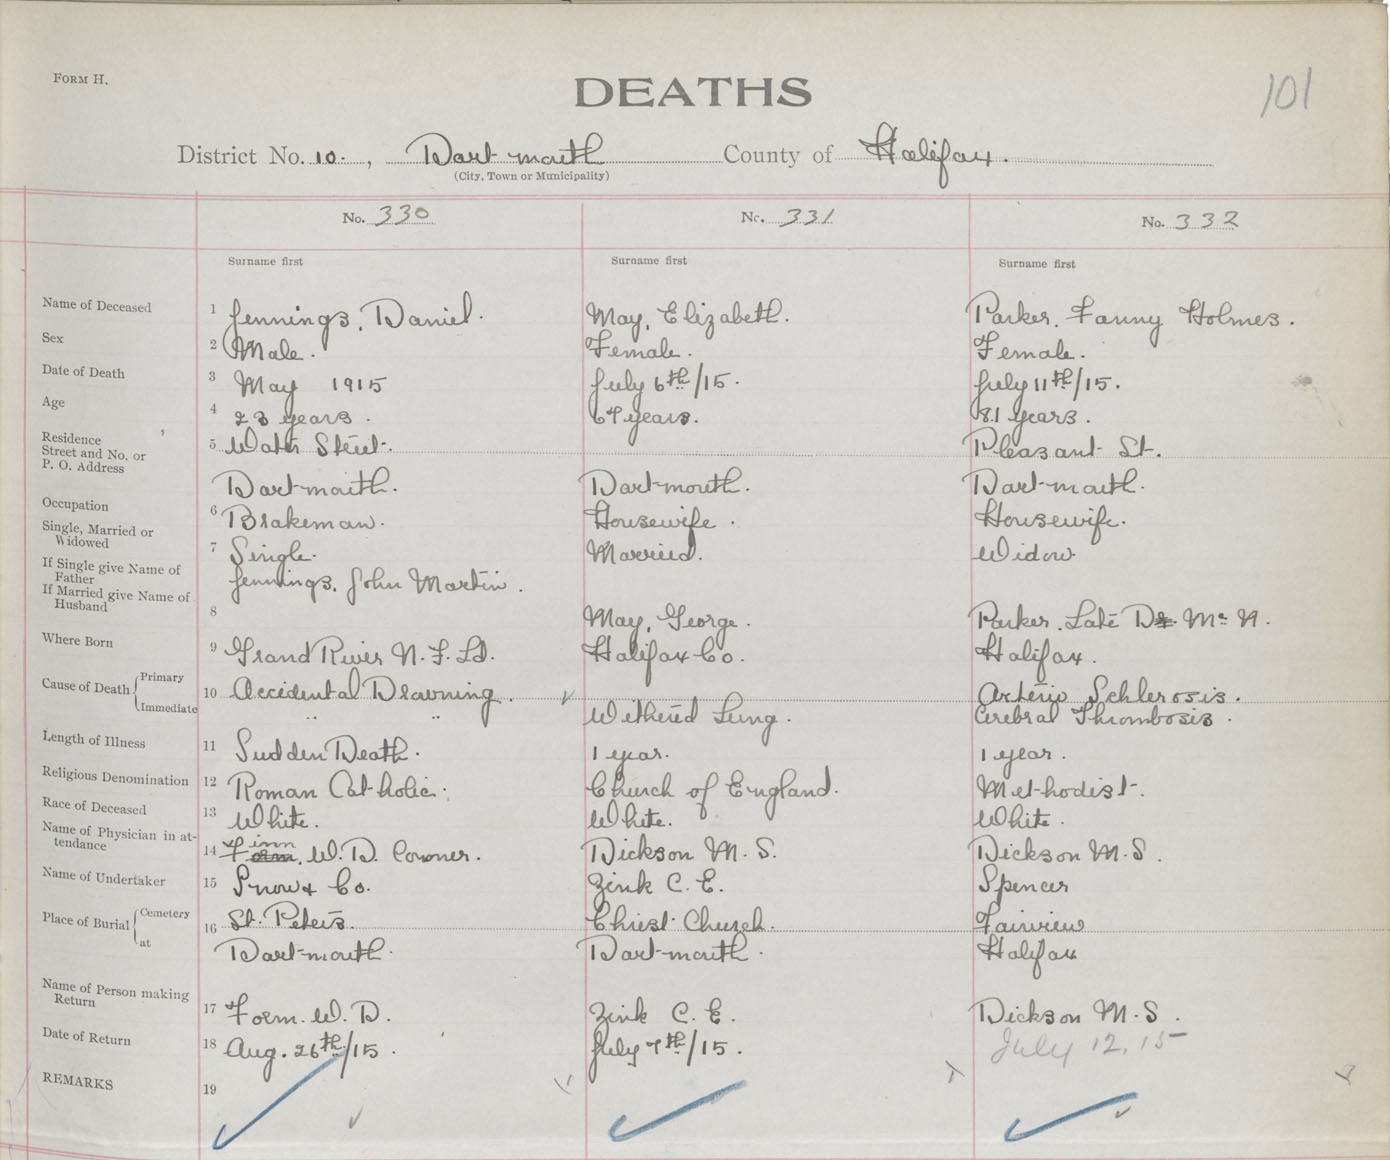 FORM H.
DEATHS
101
District No. 10. , Dartmouth County of Halifax.
(City, Town or Municipality)
No. 330 No. 331 No. 332
Surname first Surname first Surname first
Name of Deceased 1 Jennings, Daniel. May, Elizabeth. Parker, Fanny Holmes.
Sex 2 Male. Female. Female.
Date of Death 3 May 1915 July 6th/15. July 11th/15.
Age 4 23 years. 67 years. 81 years.
Residence
Street and No. or 5 Water Street. Pleasant St.
P. O. Address
Dartmouth. Dartmouth. Dartmouth.
Occupation 6 Brakeman. Housewife. Housewife.
Single, Married or
Widowed 7 Single. Married. Widow
If Single give Name of
Father Jennings, John Martin.
If Married give Name of
Husband 8 May, George. Parker, Late Dr. Mc N.
Where Born 9 Grand River N. F. Ld. Halifax Co. Halifax.
Cause of Death Primary 10 Accidental Drowning. Arterio Schlerosis.
Immediate " " Withered Lung. Cerebral Thrombosis.
Length of Illness 11 Sudden Death. 1 year. 1 year.
Religious Denomination 12 Roman Catholic. Church of England. Methodist.
Race of Deceased 13 White. White. White.
Name of Physician in at-
tendance 14 Finn, W. D. Coroner. Dickson M. S. Dickson M. S.
Name of Undertaker 15 Snow & Co. Zink C. E. Spencer
Place of Burial Cemetery 16 St. Peters. Christ Church. Fairview
at Dartmouth. Dartmouth. Halifax
Name of Person making
Return 17 Form. W. D. Zink C. E. Dickson M. S.
Date of Return 18 Aug. 26th/15. July 7th/15. July 12, 15
REMARKS 19